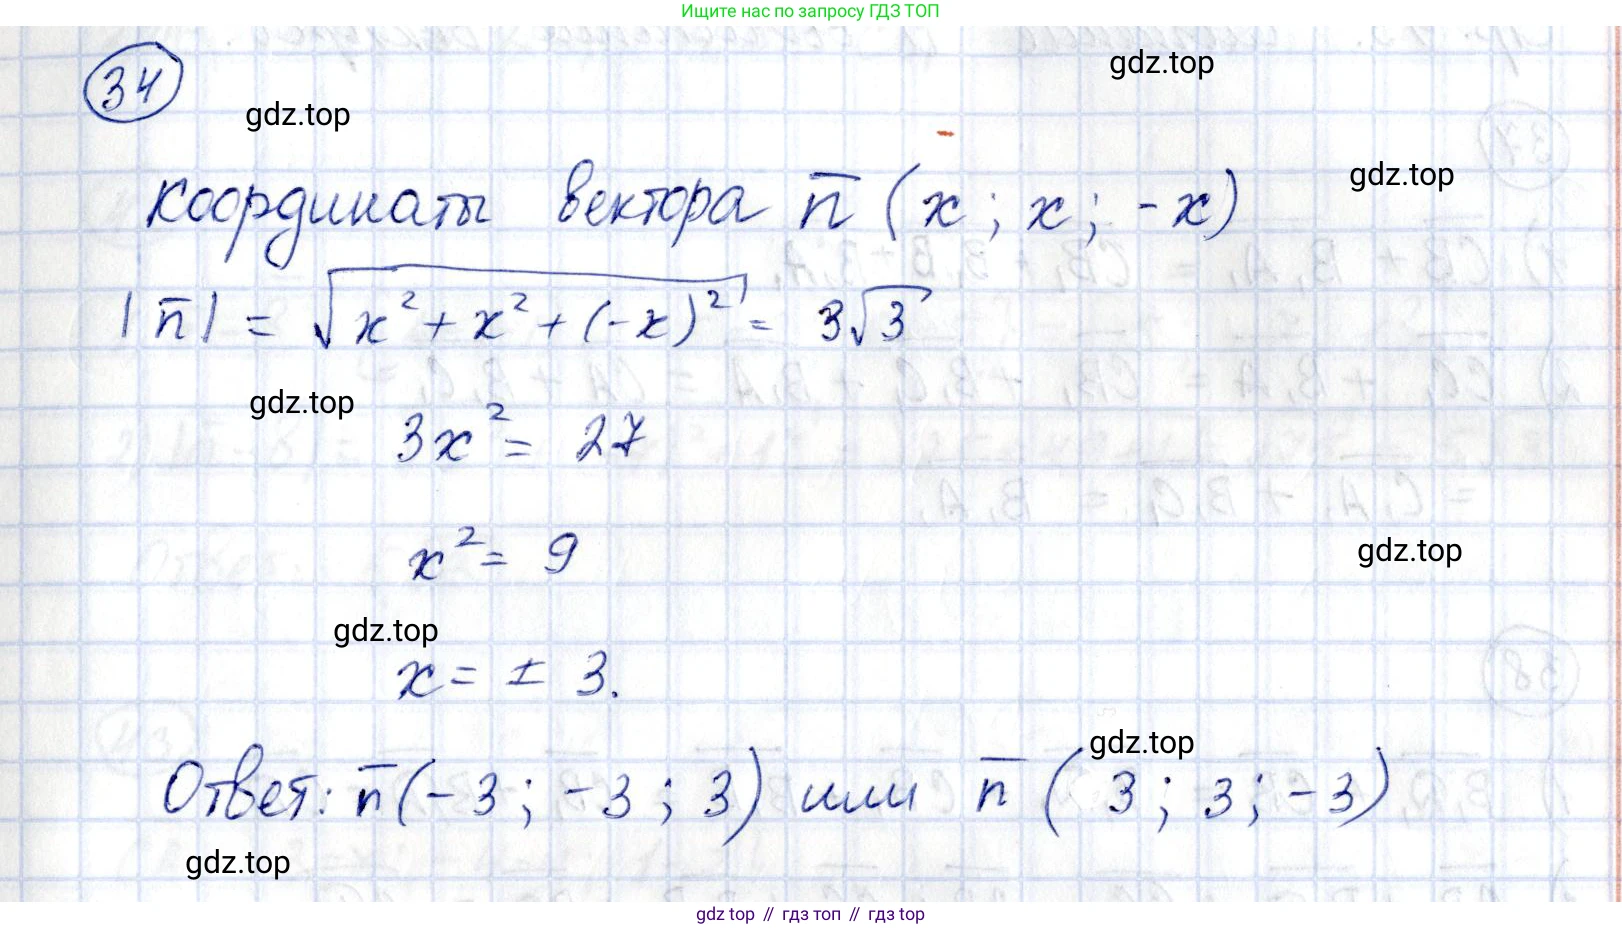 Ищите нас по запросу ГДЗ ТОП
34
gdz.top
gdz.top
gdz.top
координаты вектора n̅ (x; x; -x)
|n̅| = √(x² + x² + (-x)²) = 3√3
gdz.top
3x² = 27
x² = 9
gdz.top
gdz.top
x = ± 3.
gdz.top
Ответ: n̅ (-3; -3; 3) или n̅ (3; 3; -3)
gdz.top
gdz top // гдз топ // гдз top